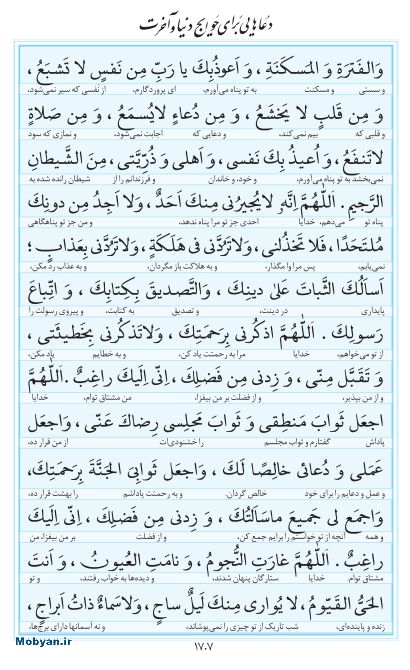 دعاهایی برای حوایج دنیا و آخرت
وَالفَترَةِ وَ المَسکَنَةِ ، وَ اَعوذُبِكَ یا رَبِّ مِن نَفسٍ لا تَشبَعُ ،
و سستی و مسکنت به تو پناه می‌آورم، ای پروردگارم، از نفسی که سیر نمی‌شود،
وَ مِن قَلبٍ لا یَخشَعُ ، وَ مِن دُعاءٍ لایُسمَعُ ، وَ مِن صَلاةٍ
و قلبی که بیم نمی‌کند، و دعایی که اجابت نمی‌شود، و نمازی که سود
لاتَنفَعُ ، وَ اُعیذُ بِكَ نَفسی، وَ اَهلی وَ ذُرِّیَّتی ، مِنَ الشَّیطانِ
نمی‌بخشد به تو پناه می‌آورم، و خود، و خاندان و فرزندانم را از شیطان رانده شده به
الرَّجیمِ . اَللّٰهُمَّ اِنَّهُ لایُجیرُنی مِنكَ اَحَدٌ ، وَلا اَجِدُ مِن دونِكَ
پناه تو می‌دهم. خدایا احدی جز تو مرا پناه ندهد. و من جز تو پناهگاهی
مُلتَحَدًا ، فَلا تَخذُلنی، وَلاتَرُدَّنی فی هَلَکَةٍ ، وَلاتَرُدَّنی بِعَذابٍ ؛
نمی‌یابم، پس مرا وا مگذار، و به هلاکت باز مگردان، و به عذاب رد مکن.
اَسأَلُكَ الثَّباتَ عَلیٰ دینِكَ ، وَالتَّصدیقَ بِکِتابِكَ ، وَ اتِّباعَ
پایداری در دینت، و تصدیق به کتابت، و پیروی رسولت را
رَسولِكَ . اَللّٰهُمَّ اذکُرنی بِرَحمَتِكَ ، وَلاتَذکُرنی بِخَطیئَتی ،
از تو می‌خواهم، خدایا مرا به رحمتت یاد کن، و به خطایم یاد مکن،
وَ تَقَبَّل مِنّی ، وَ زِدنی مِن فَضلِكَ ، اِنّی اِلَیكَ راغِبٌ . اَللّٰهُمَّ
و از من بپذیر، و از فضلت بر من بیفزا، من مشتاق توام، خدایا
اجعَل ثَوابَ مَنطِقی وَ ثَوابَ مَجلِسی رِضاكَ عَنّی ، وَاجعَل
پاداش گفتارم و ثواب مجلسم را خشنودی‌ات از من قرار ده،
عَمَلی وَ دُعائی خالِصًا لَكَ ، وَاجعَل ثَوابِیَ الجَنَّةَ بِرَحمَتِكَ،
و عمل و دعایم را برای خود خالص گردان، و به رحمتت پاداشم را بهشت قرار ده،
وَاجمَع لی جَمیعَ ماسَأَلتُكَ ، وَ زِدنی مِن فَضلِكَ ، اِنّی اِلَیكَ
و همه آنچه از تو خواستم را برایم جمع کن، و از فضلت بر من بیفزا، من
راغِبٌ . اَللّٰهُمَّ غارَتِ النُّجومُ ، وَ نامَتِ العُیونُ ، وَ اَنتَ
مشتاق توام. خدایا ستارگان پنهان شدند، و دیده‌ها به خواب رفتند، و تو
الحَیُّ القَیّومُ ، لا یُواری مِنكَ لَیلٌ ساجٍ ، وَلاسَماءٌ ذاتُ اَبراجٍ ،
زنده و پاینده‌ای، شب تاریک از تو چیزی را نمی‌پوشاند، و نه آسمانها دارای برج‌ها،
۱۷۰۷
Mobyan.ir